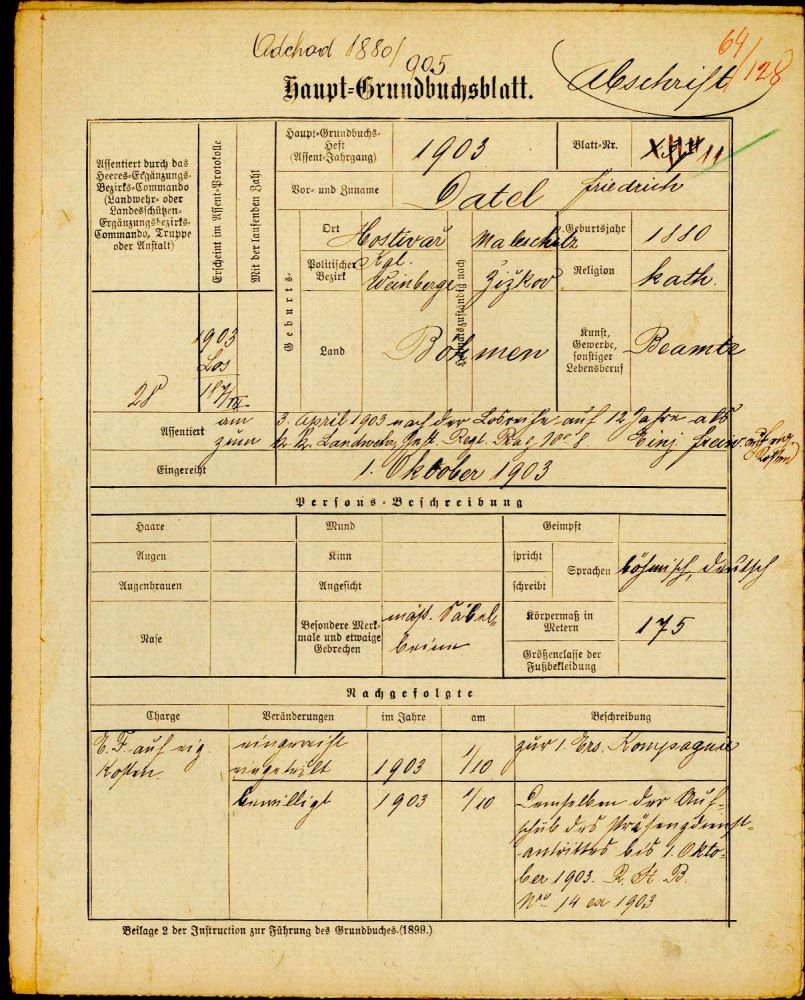 Odchod 1880/
905
Abschrift
64/128
Haupt-Grundbuchsblatt.
Assentiert durch das
Heeres-Ergänzungs-
Bezirks-Commando
(Landwehr- oder
Landesschützen-
Ergänzungsbezirks-
Commando, Truppe
oder Anstalt)
Erscheint im Assent-Protokolle
Mit der laufenden Zahl
Haupt-Grundbuchs-
Heft
(Assent-Jahrgang)
1903
Blatt-Nr.
Vor- und Zuname
Datel Friedrich
Geburts-
Ort
Hostivař
Heimatszuständig nach
Maleschitz
Geburtsjahr
1880
Politischer
Bezirk
Kgl.
Weinberge
Žižkov
Religion
kath.
Land
Böhmen
Kunst,
Gewerbe,
sonstiger
Lebensberuf
Beamte
28
1903
Los
187/III
Assentiert
am 3. April 1903 nach der Losreihe auf 12 Jahre als
zum k. k. Landwehr Inft. Regt. Prag No 8 Einj. freiw. auf eig.
Kosten)
Eingereiht
1. Oktober 1903
Persons-Beschreibung
Haare
Mund
Geimpft
Augen
Kinn
spricht
Sprachen
böhmisch, deutsch
Augenbrauen
Angesicht
schreibt
Nase
Besondere Merk-
male und etwaige
Gebrechen
mäß. Säbel-
beine
Körpermaß in
Metern
175
Größenclasse der
Fußbekleidung
Nachgefolgte
Charge
Veränderungen
im Jahre
am
Beschreibung
E. F. auf eig.
Kosten.
eingereiht
eingeteilt
1903
1/10
zur 1. Ers. Kompagnie
bewilligt
1903
1/10
Demselben der Auf-
schub des Präsenzdienst-
antrittes bis 1. Okto-
ber 1903. R. H. B.
No 14 ex 1903
Beilage 2 der Instruction zur Führung des Grundbuches.(1899.)